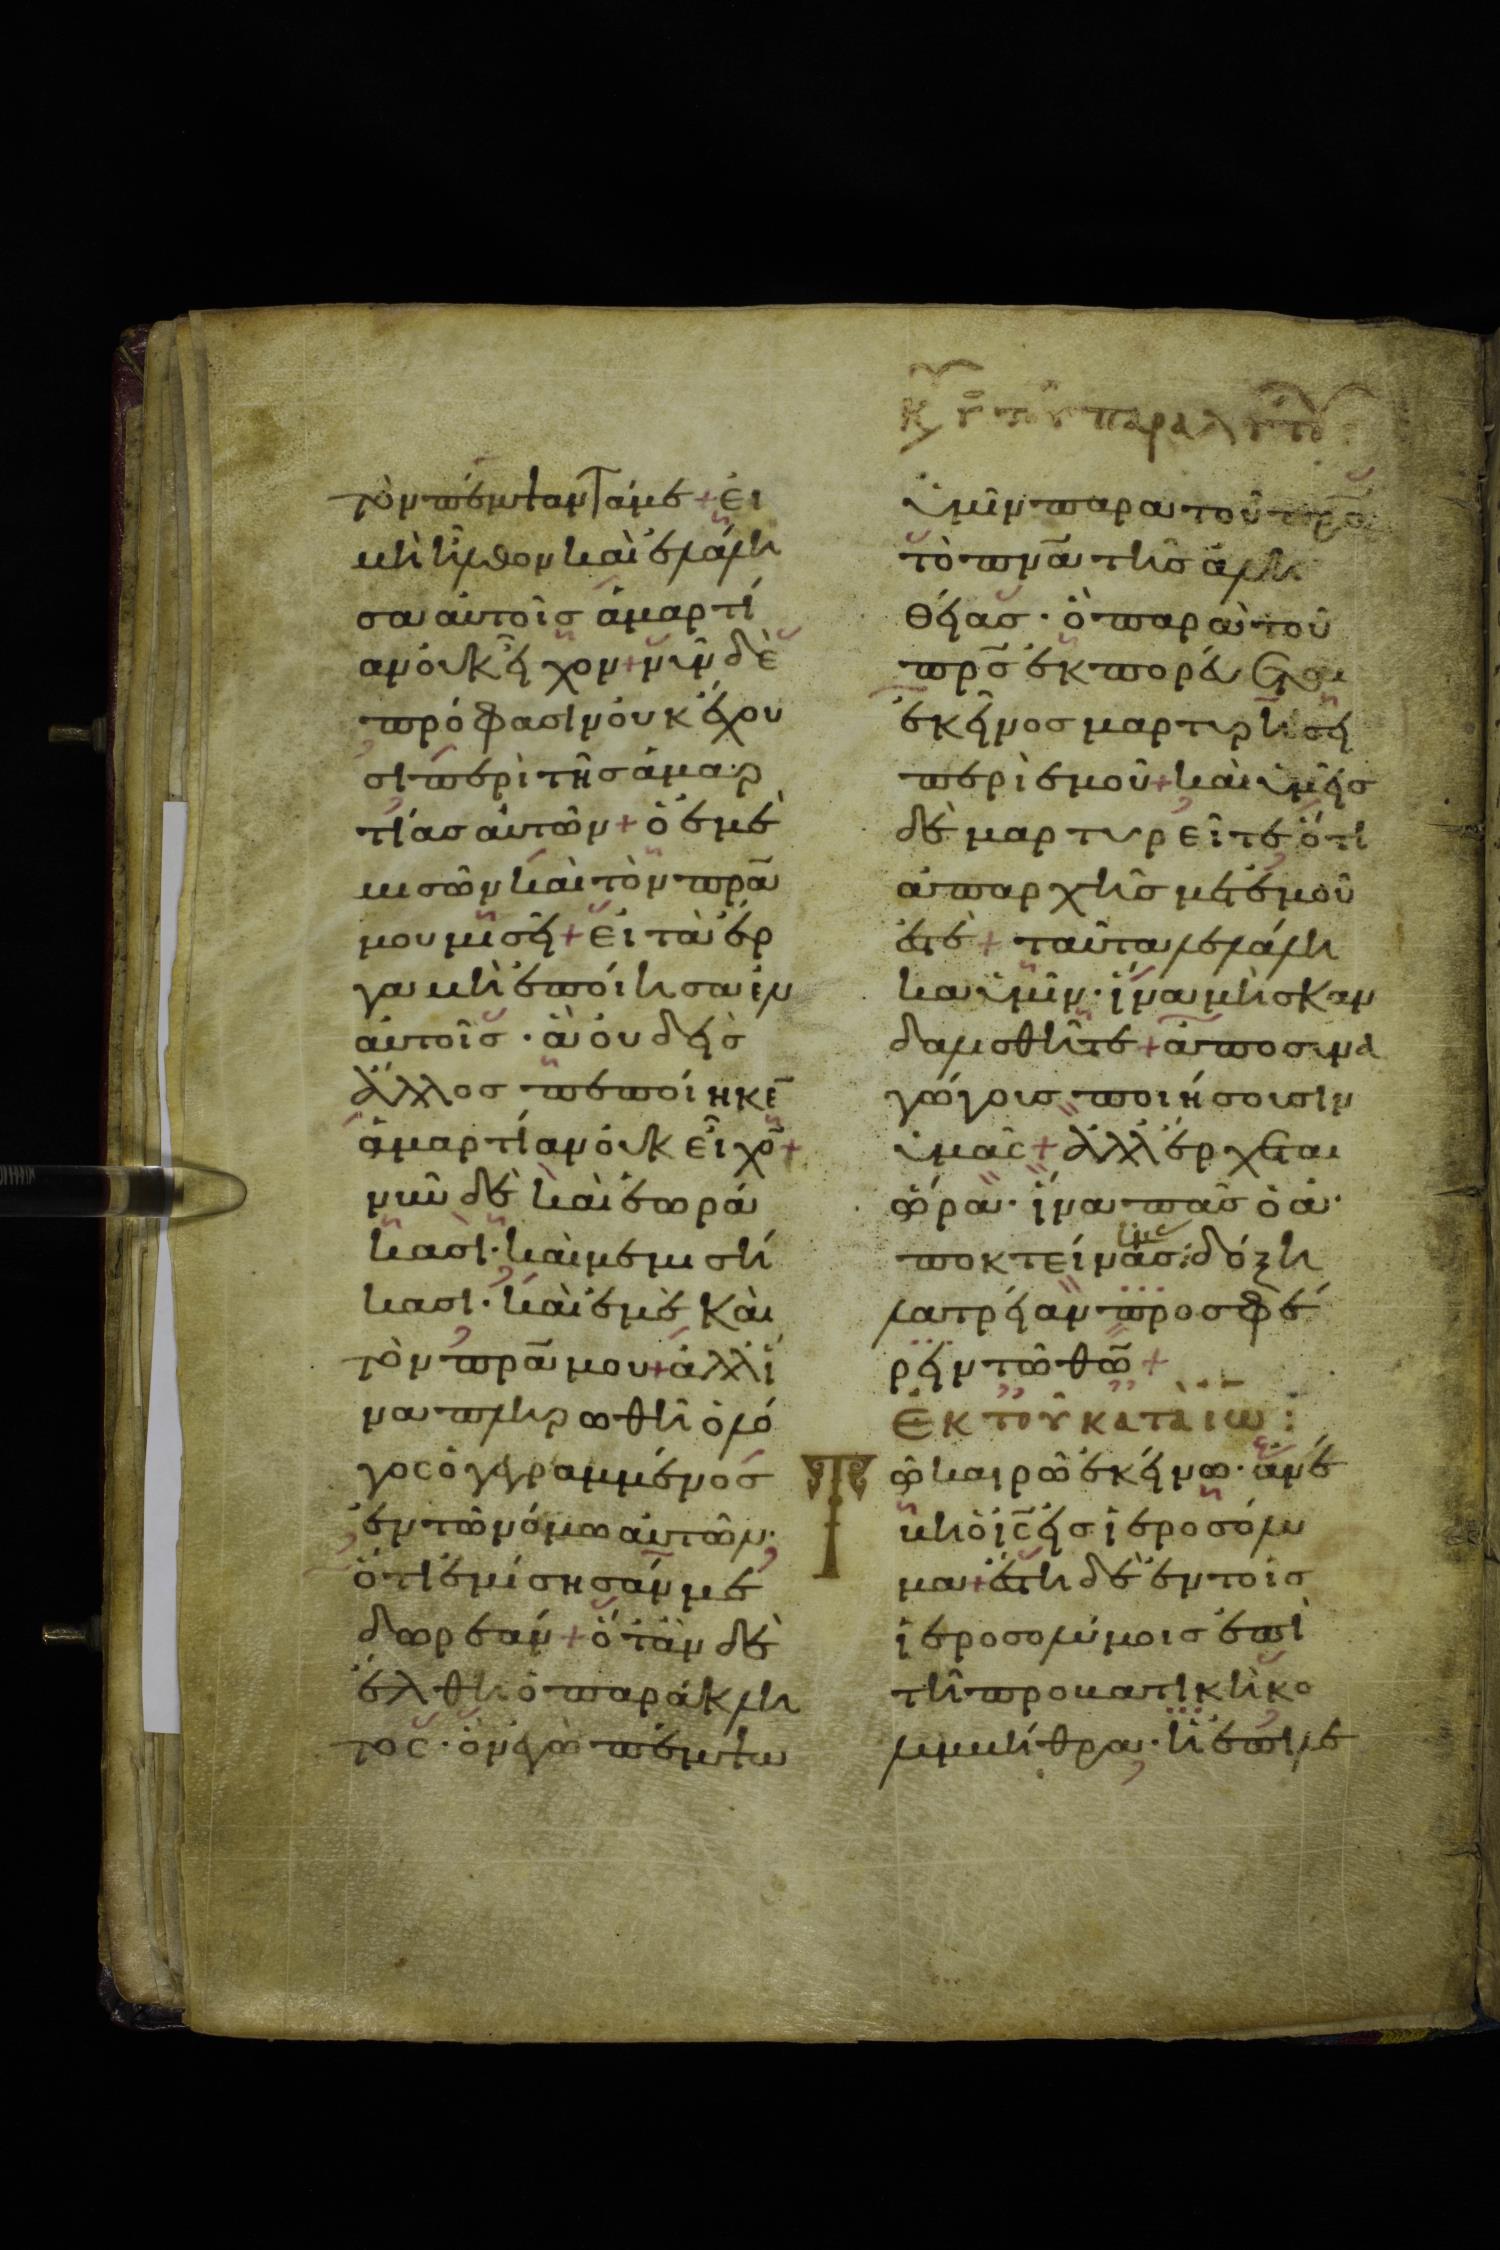 τὸν πέμψαντάμε + εἰ
μὴ ἦλθον καὶ ἐλάλη
σα αὐτοῖς ἁμαρτί
αν οὐκ εἶχον + νῦν δὲ
πρόφασιν οὐκ ἔχου
σι περὶ τῆς ἁμαρ
τίας αὐτῶν + ὁ ἐμὲ
μισῶν καὶ τὸν πρα̅
μου μισεῖ + εἰ τὰ ἔρ
γα μὴ ἐποίησα ἐν
αὐτοῖς · ἃ οὐδεὶς
ἄλλος πεποίηκε̅
ἁμαρτίαν οὐκ εἶχο̅ +
νῦν δὲ καὶ ἑωρά
κασι · καὶ μεμισή
κασι · καὶ ἐμὲ καὶ
τὸν πρα̅ μου + ἀλλ' ἵ
να πληρωθῆ ὁ λό
γος ὁ γεγραμμένος
ἐν τῶ νόμω αὐτῶν ·
ὅτι ἐμίσησάν με
δωρεάν + ὅταν δὲ
ἔλθη ὁ παράκλη
τος · ὃν ἐγὼ πέμψω
Κυ τοῦ παραλύτο :
ὑμῖν παρα τοῦ πρσ̅
τὸ πνα̅ τῆς ἀλη
θείας · ὃ παρα τοῦ
πρσ̅ ἐκπορεύεται
ἐκεῖνος μαρτυρήσει
περὶ ἐμοῦ + καὶ ὑμεῖς
δὲ μαρτυρεῖτε ὅτι
ἀπαρχῆς μετ' ἐμοῦ
ἐστὲ + ταῦτα λελάλη
κα ὑμῖν · ἵνα μὴ σκαν
δαλισθῆτε + ἀποσυνα
γώγους ποιήσουσιν
ὑμᾶς + ἀλλ' ἔρχεται
ὥρα · ἵνα πᾶς ὁ ἀ
ποκτείνας ὑμᾶς : δόξη
λατρείαν προσφέ
ρειν τῶ θω̅ +
Ἐκ τοῦ κατὰ ιω̅ :
Τῶ καιρῶ ἐκείνω · ἀνέ
βη ὁ ις̅ εἰς ἱεροσόλυ
μα + ἔστι δὲ ἐν τοῖς
ἱεροσολύμοις ἐπὶ
τῆ προβατικῆ κο
λυμβήθρα · ἡ ἐπιλε